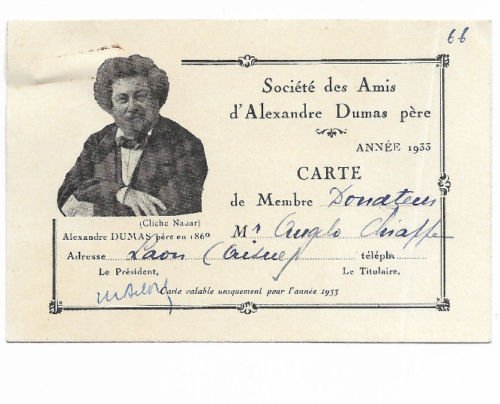 66
Société des Amis
d'Alexandre Dumas père
ANNÉE 1933
CARTE
de Membre Donateur
(Cliché Nadar)
Alexandre DUMAS père en 1860
Mr Angelo Chiappe
Adresse Laon (Aisne) téléph.
Le Président, Le Titulaire,
Carte valable uniquement pour l'année 1933